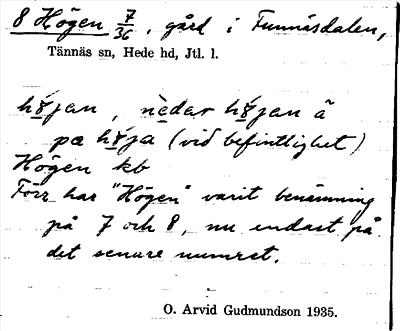 8 Högen 7/36, gård i Funnäsdalen,
Tännäs sn, Hede hd, Jtl. l.
höjan, nedar höjan å
pa höja (vid befintlighet)
Högen kb
Förr har "Högen" varit benämning
på 7 och 8, nu endast på
det senare numret.
O. Arvid Gudmundson 1935.